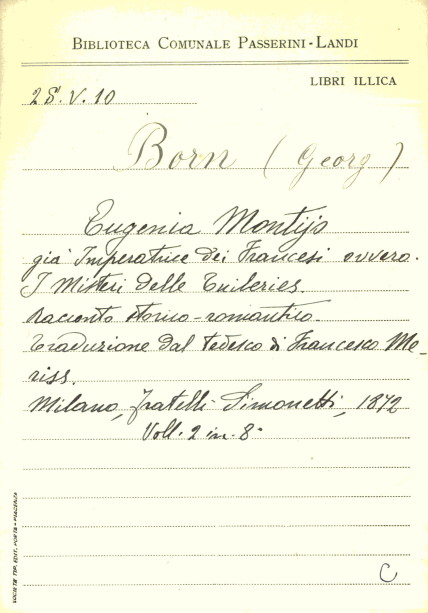 BIBLIOTECA COMUNALE PASSERINI-LANDI
LIBRI ILLICA
28.V.10
Born (Georg)
Eugenia Montijo
già Imperatrice dei Francesi ovvero.
I Misteri delle Tuileries.
Racconto storico-romantico.
Traduzione dal tedesco di Francesco Me-
riss.
Milano, Fratelli Simonetti, 1872
Voll. 2 in-8°
C
SOCIETÀ TIP. EDIT. PORTA - PIACENZA